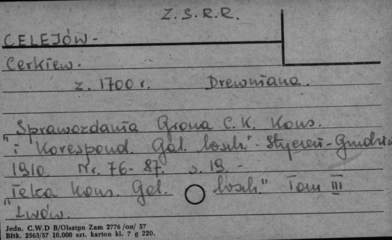 Z.S.R.R.
CELEJÓW-
Cerkiew.
z. 1700 r. Drewniana.
"Sprawozdania Grona C.K. Kons.
i Korespond. Gal. wsch." Styczeń-Grudzień
1910. Nr. 76-87. s. 19 -
"Teka Kons. Gal. wsch." Tom III
"Lwów.
Jedn. C.W.D B/Olsztyn Zam 2776/on/ 57
Błtk. 2563/57 10.000 szt. karton kl. 7 g 220.